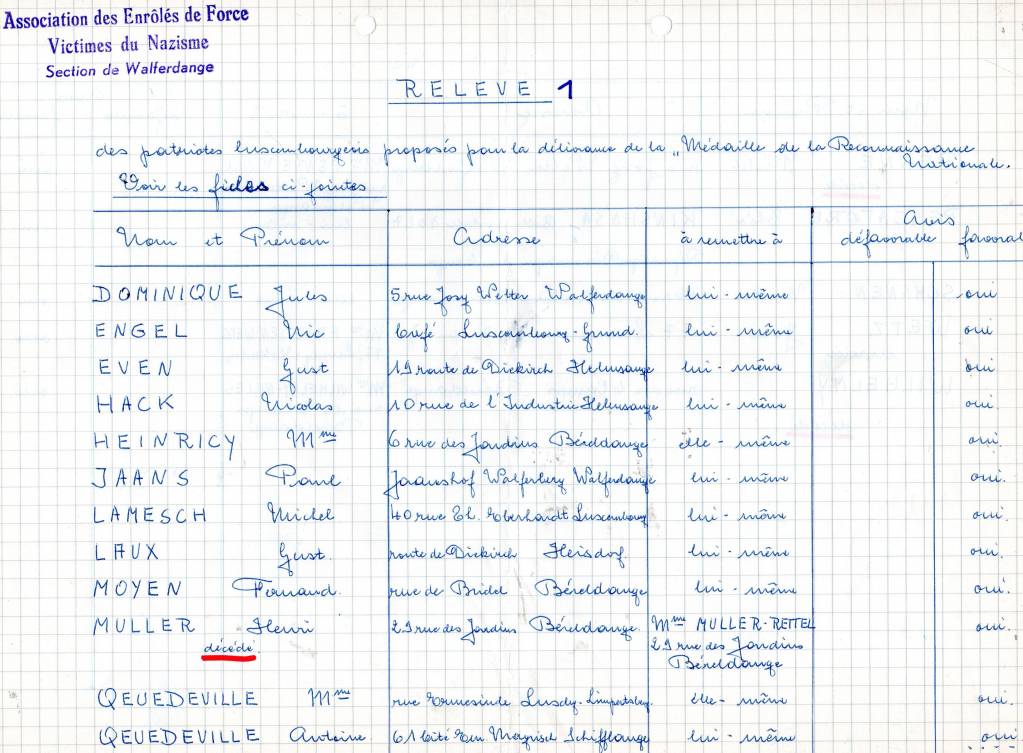 Association des Enrôlés de Force
Victimes du Nazisme
Section de Walferdange
RELEVE 1
des patriotes luxembourgeois proposés pour la délivrance de la „Médaille de la Reconnaissance
Nationale.
Voir les fiches ci-jointes
Nom et Prénom Adresse à remettre à Avis
défavorable favorab
DOMINIQUE Jules 5 rue Josy Welter Walferdange lui-même oui
ENGEL Nic Café Luxembourg-Grund. lui-même oui
EVEN Gust 19 route de Diekirch Helmsange lui-même oui
HACK Nicolas 10 rue de l'Industrie Helmsange lui-même oui.
HEINRICY Mme 6 rue des Jardins Béreldange elle-même oui.
JAANS Paul Jaanshof Walferberg Walferdange lui-même oui.
LAMESCH Michel 40 rue Eberhardt Luxembourg lui-même oui.
LAUX Gust. route de Diekirch Heisdorf. lui-même oui.
MOYEN Fernand. rue de Bridel Béreldange lui-même oui.
MULLER Henri 29 rue des Jardins Béreldange. Mme MULLER-REITEL oui.
décédé. 29 rue des Jardins
Béreldange
QEUEDEVILLE Mme rue Ermesinde Luxbg-Limpertsberg elle-même oui.
QEUEDEVILLE Antoine 61 Cité Em Mayrisch Schifflange lui-même oui